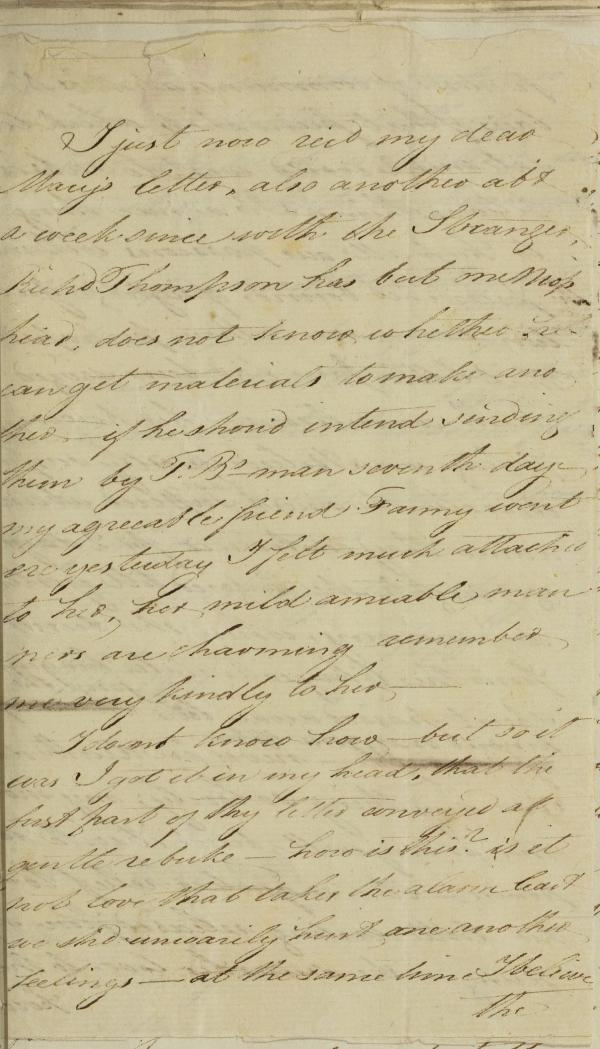 I just now recd my dear
Mary's letter, also another abt
a week since with the Stranger,
Richd Thompson has but one Mop
head, does not know whether he
can get materials to make ano
ther — if he shoud intend sending
them by T. Bs man seventh day —
my agreeable friend Fanny went
ere yesterday I felt much attachd
to her, her mild amiable man
ners are charming remember
me very kindly to her —
I dont know how — but so it
was I got it in my head, that the
first part of thy letter conveyed a
gentle rebuke — how is this? is it
not love that takes the alarm least
we shd unwarily hurt one another
feelings — at the same time I believe
the